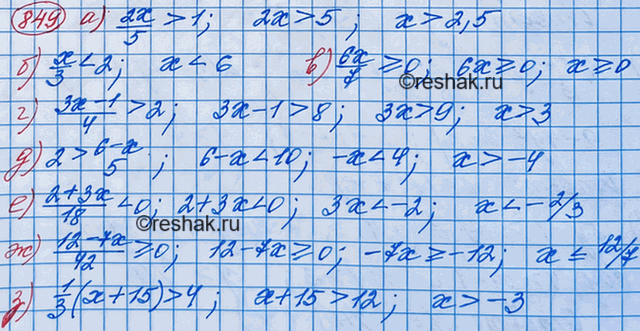 849 а) 2x/5 > 1; 2x > 5; x > 2,5
б) x/3 < 2; x < 6 в) 6x/7 ≥ 0; 6x ≥ 0; x ≥ 0
©reshak.ru
г) 3x-1/4 > 2; 3x-1 > 8; 3x > 9; x > 3
д) 2 > 6-x/5; 6-x < 10; -x < 4; x > -4
е) 2+3x/18 < 0; 2+3x < 0; 3x < -2; x < -2/3
©reshak.ru
ж) 12-7x/42 ≥ 0; 12-7x ≥ 0; -7x ≥ -12; x ≤ 12/7
з) 1/3(x+15) > 4; x+15 > 12; x > -3